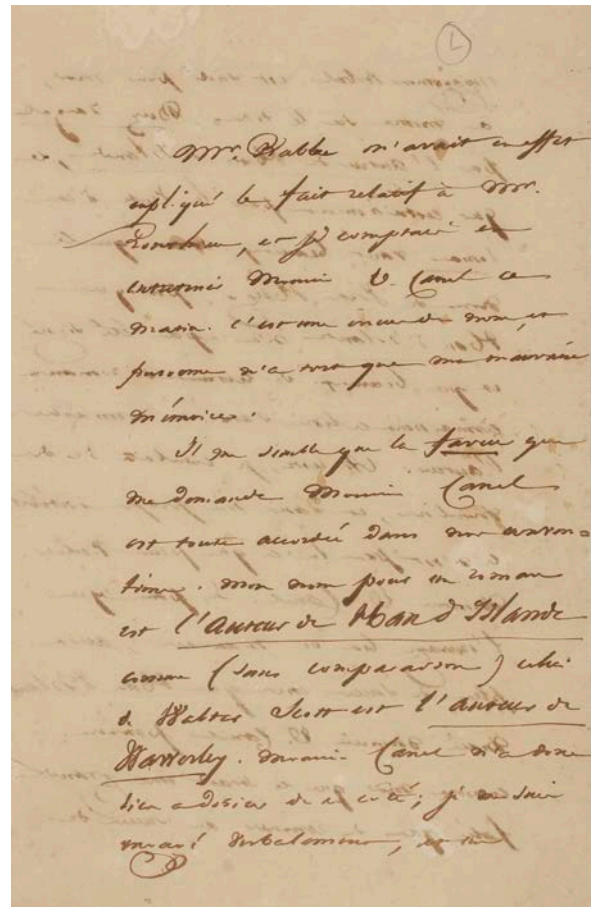 Mr. Rabbe m'avait en effet
expliqué le fait relatif à Mr.
et je comptais en
entretenir Monsieur U. Canel ce
matin. C'est une erreur de nom, et
personne n'a tort que ma mauvaise
mémoire.
Il me semble que la faveur que
me demande Monsieur Canel
est toute accordée dans nos conven=
tions. Mon nom pour un roman
est l'auteur de Han d'Islande
comme (sans comparaison) celui
de Walter Scott est l'auteur de
Waverley. Monsieur Canel n'a donc
rien à désirer de ce côté; je me suis
verbalement, et